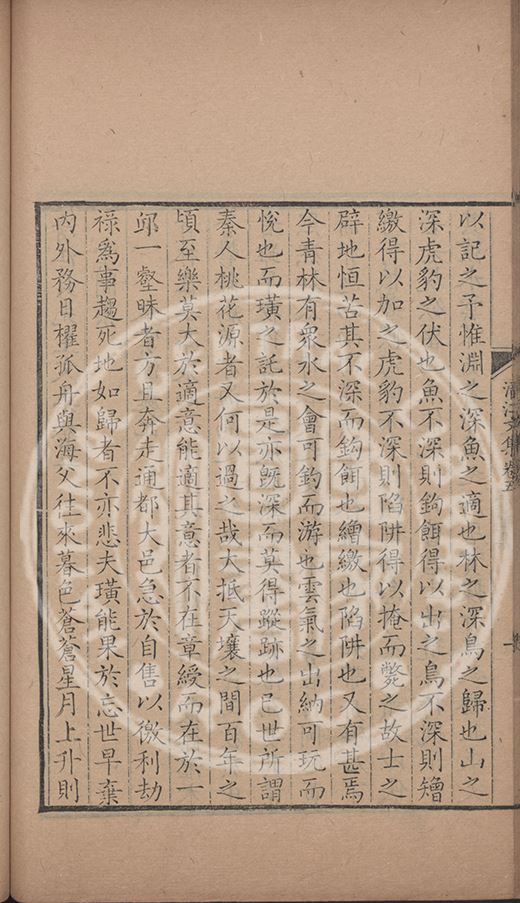 以記之予惟淵之深魚之適也林之深鳥之歸也山之
深虎豹之伏也魚不深則鉤餌得以出之鳥不深則矰
繳得以加之虎豹不深則陷阱得以掩而斃之故士之
辟地恒苦其不深而鉤餌也繒繳也陷阱也又有甚焉
今青林有衆水之會可釣而游也雲氣之出納可玩而
悅也而璜之託於是亦既深而莫得蹤跡也已世所謂
秦人桃花源者又何以過之哉大抵天壤之間百年之
頃至樂莫大於適意能適其意者不在章綬而在於一
邱一壑昧者方且奔走通都大邑急於自售以徼利劫
祿爲事趨死地如歸者不亦悲夫璜能果於忘世早棄
內外務日櫂孤舟與海父往來暮色蒼蒼星月上升則
文集卷五